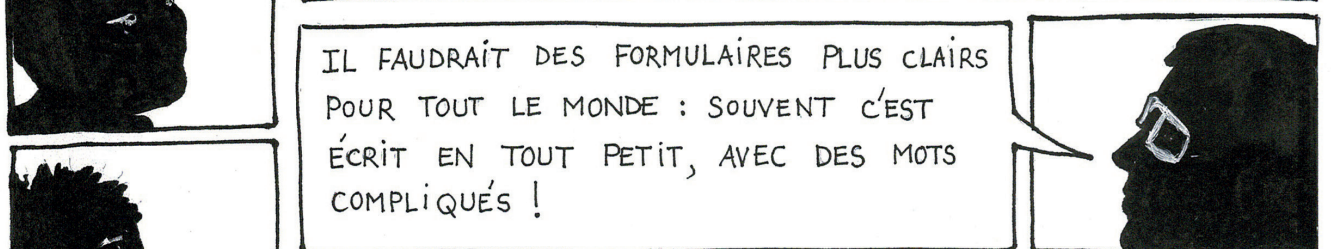 IL FAUDRAIT DES FORMULAIRES PLUS CLAIRS
POUR TOUT LE MONDE : SOUVENT C'EST
ÉCRIT EN TOUT PETIT, AVEC DES MOTS
COMPLIQUÉS !